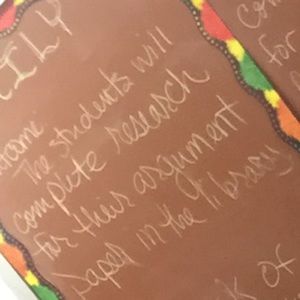 The students will
complete research
for their argument
paper in the library
for
k of